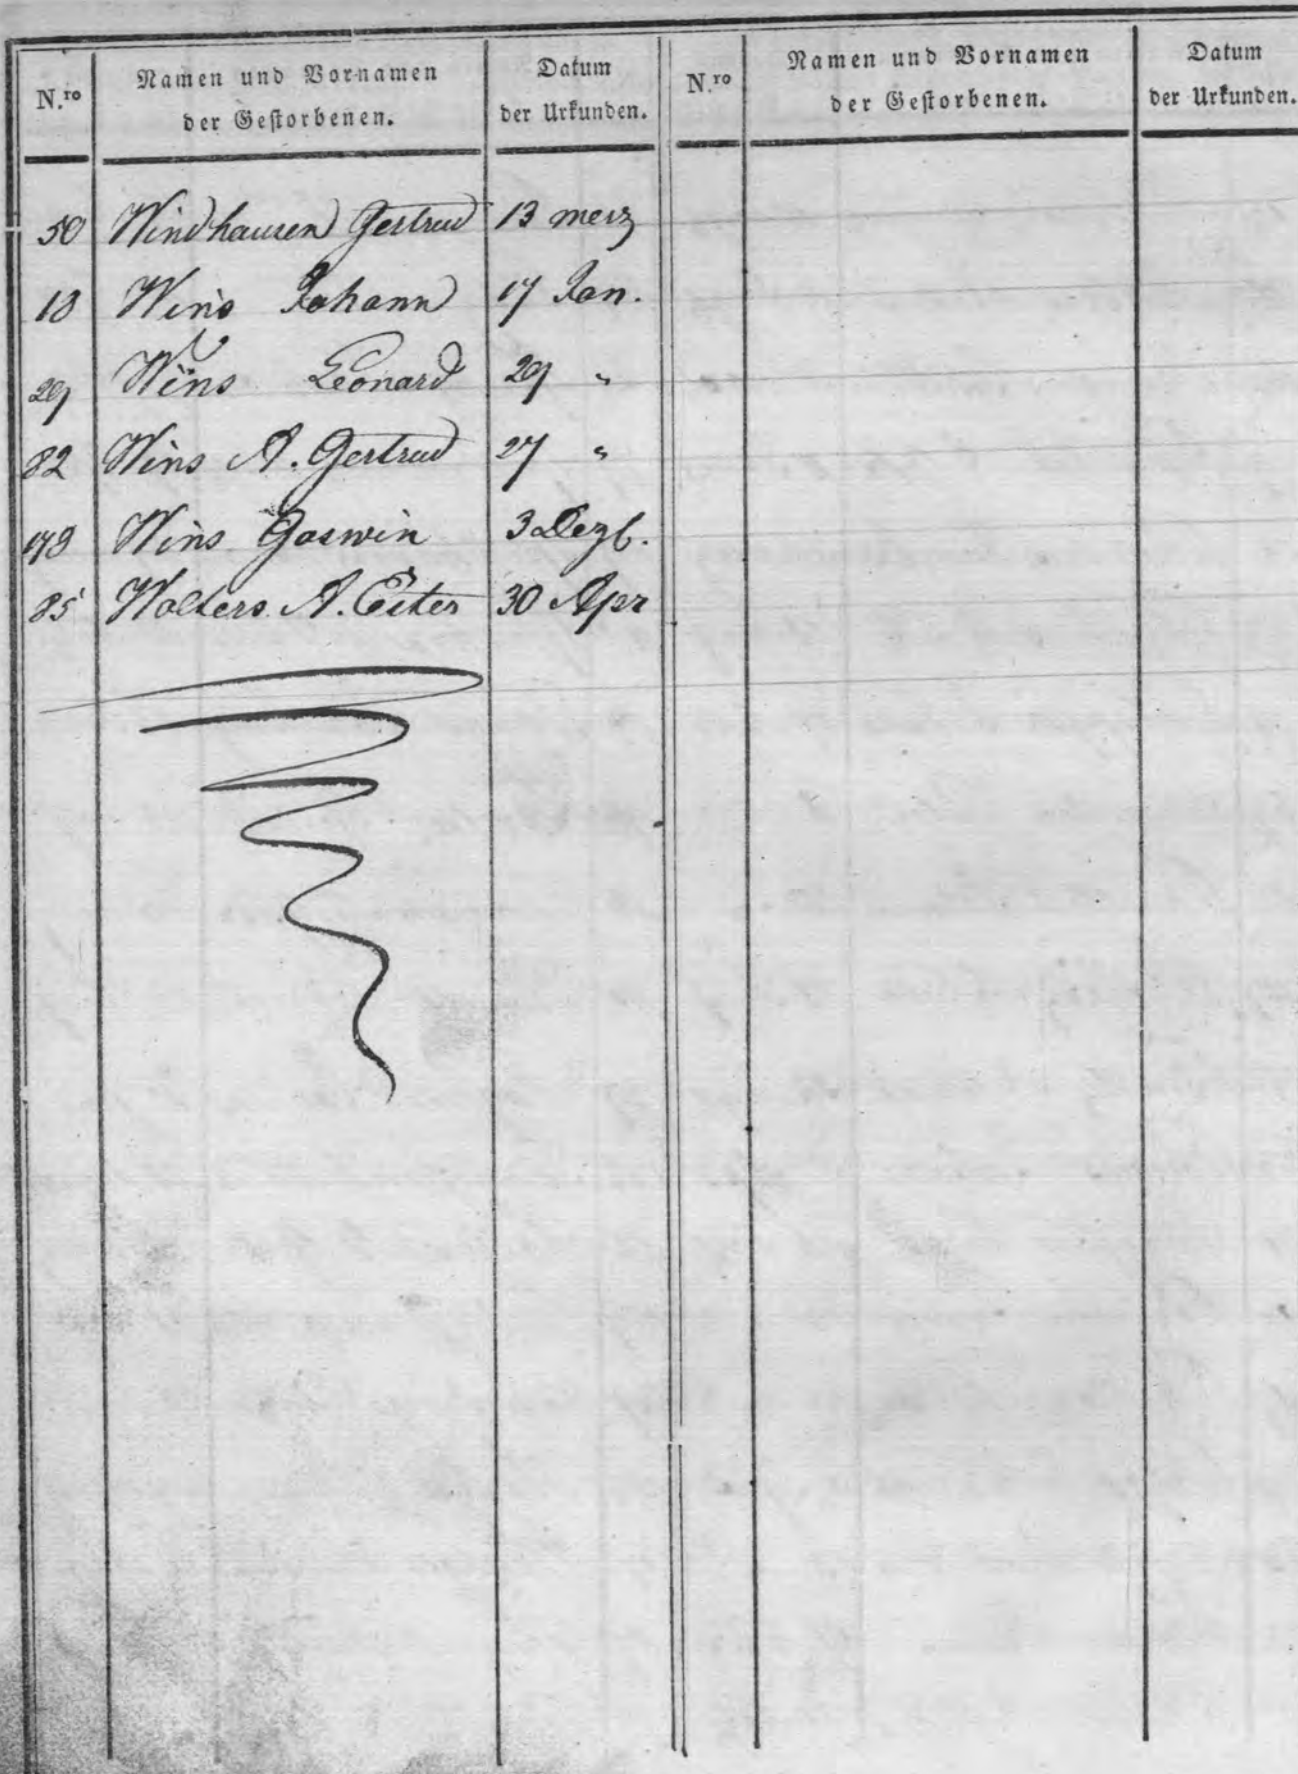 N.ro Namen und Vornamen der Gestorbenen. Datum der Urkunden. N.ro Namen und Vornamen der Gestorbenen. Datum der Urkunden.
50 Windhausen Gertrud 13 merz
18 Wins Johann 17 Jan.
29 Wins Leonard 29 "
82 Wins A. Gertrud 27 "
178 Wins Goswin 3 Dezb.
85 Wolters A. 30 Apr